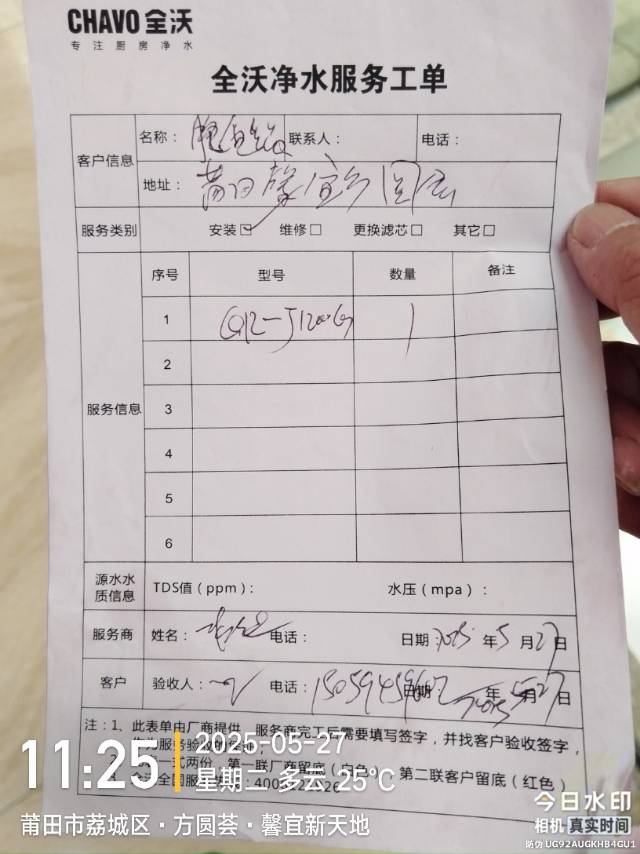 CHAVO 全沃
专注厨房净水
全沃净水服务工单
客户信息
名称： 联系人： 电话：
地址：莆田馨宜
服务类别 安装☑ 维修□ 更换滤芯□ 其它□
服务信息
序号 型号 数量 备注
1 GR-J1200G 1
2
3
4
5
6
源水水质信息 TDS值（ppm）： 水压（mpa）：
服务商 姓名： 电话： 日期：2025年5月27日
客户 验收人： 电话：15059459602 日期：2025年5月27日
注：1、此表单由厂商提供，服务商完工后需要填写签字，并找客户验收签字，
一式两份，第一联厂商留底（白色），第二联客户留底（红色）
全沃全国服务
11:25
2025-05-27
星期二 多云 25℃
莆田市荔城区·方圆荟·馨宜新天地
今日水印
相机 真实时间
防伪 UG92AUGKHB4GU1